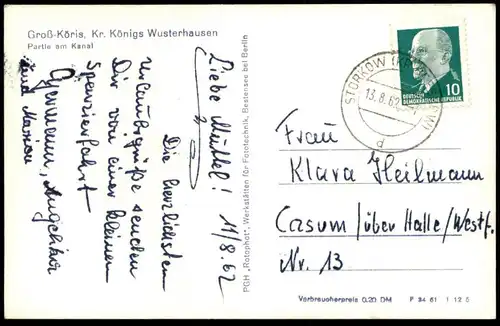 Groß-Köris, Kr. Königs Wusterhausen
Partie am Kanal
Liebe Muttel! 11/8.62
Die herzlichsten
Urlaubsgrüße senden
Dir von einer kleinen
Spazierfahrt
Hermann,
und Marion
PGH „Rotophot“, Werkstätten für Fototechnik, Bestensee bei Berlin
STORKOW (
13.8.62
d
DEUTSCHE
DEMOKRATISCHE REPUBLIK
10
Frau
Klara Heilmann
Casum / über Halle/Westf.
Nr. 13
Verbraucherpreis 0.20 DM P 34 61 1 12 5